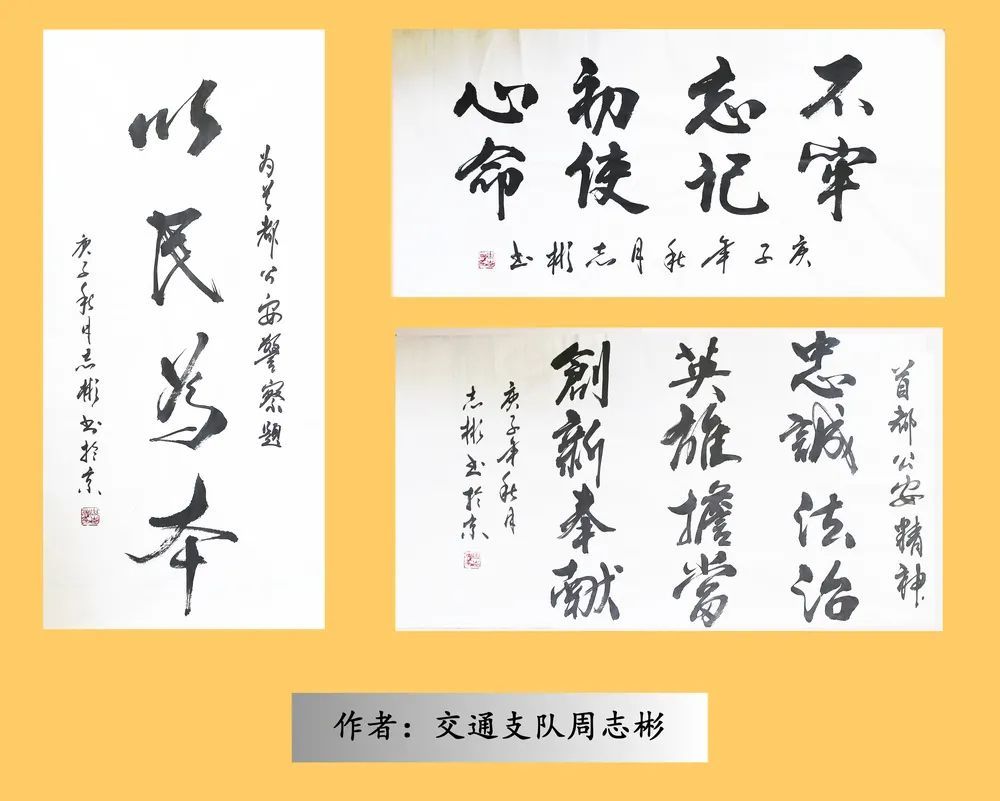 为首都公安警察题
以民为本
庚子秋月志彬书於京
不忘初心
牢记使命
庚子年秋月志彬书
首都公安精神
忠誠法治
英雄擔當
創新奉献
庚子年秋月
志彬书於京
作者：交通支队周志彬